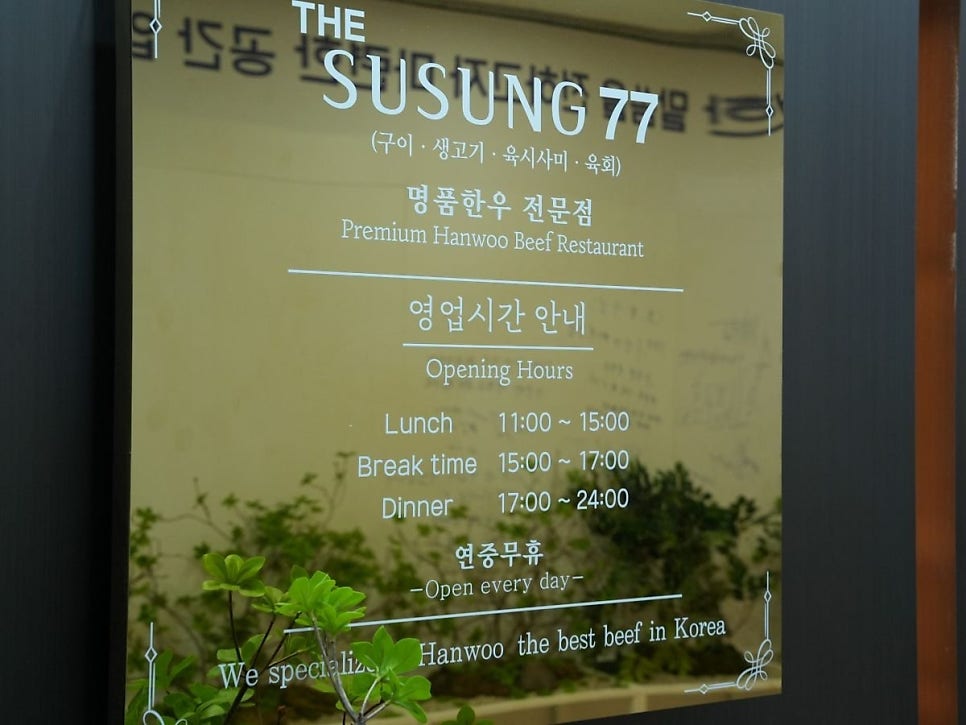 THE
SUSUNG 77
(구이 · 생고기 · 육시사미 · 육회)
명품한우 전문점
Premium Hanwoo Beef Restaurant
영업시간 안내
Opening Hours
Lunch 11:00 ~ 15:00
Break time 15:00 ~ 17:00
Dinner 17:00 ~ 24:00
연중무휴
-Open every day-
We specialize Hanwoo the best beef in Korea